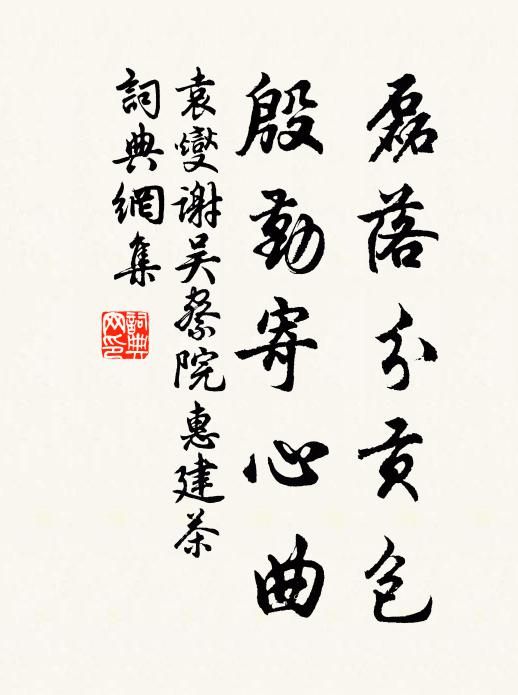 磊落分貢包
殷勤寄心曲
袁燮謝吴察院惠建茶
詞典網集
詞典
网印